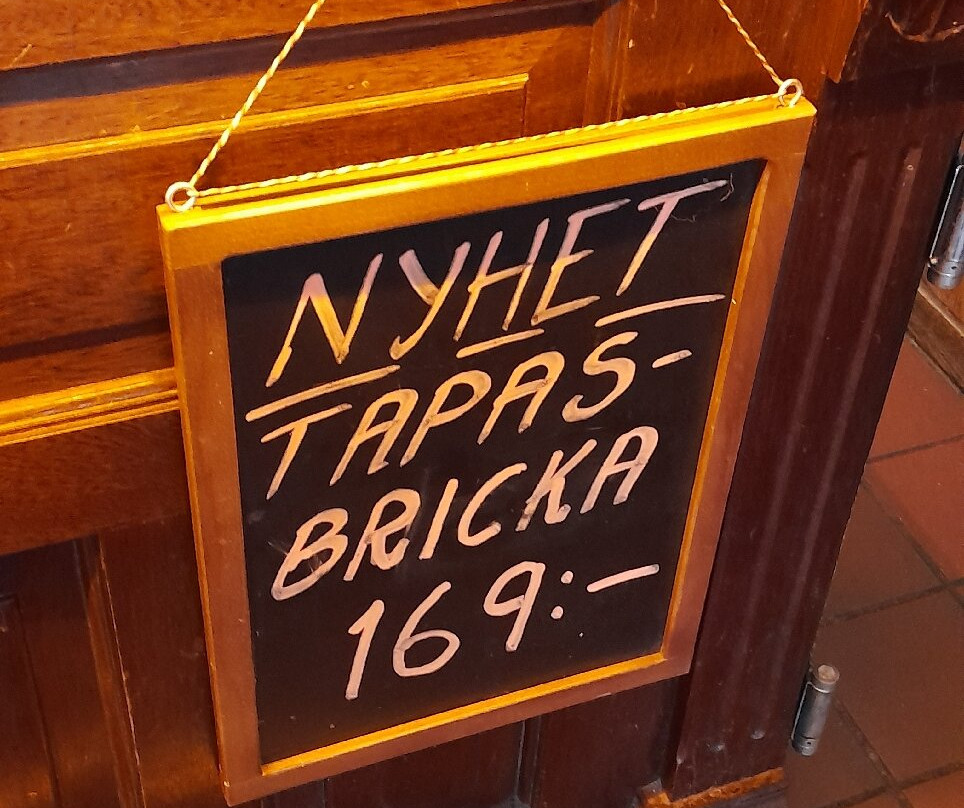 NYHET
TAPAS-
BRICKA
169:-